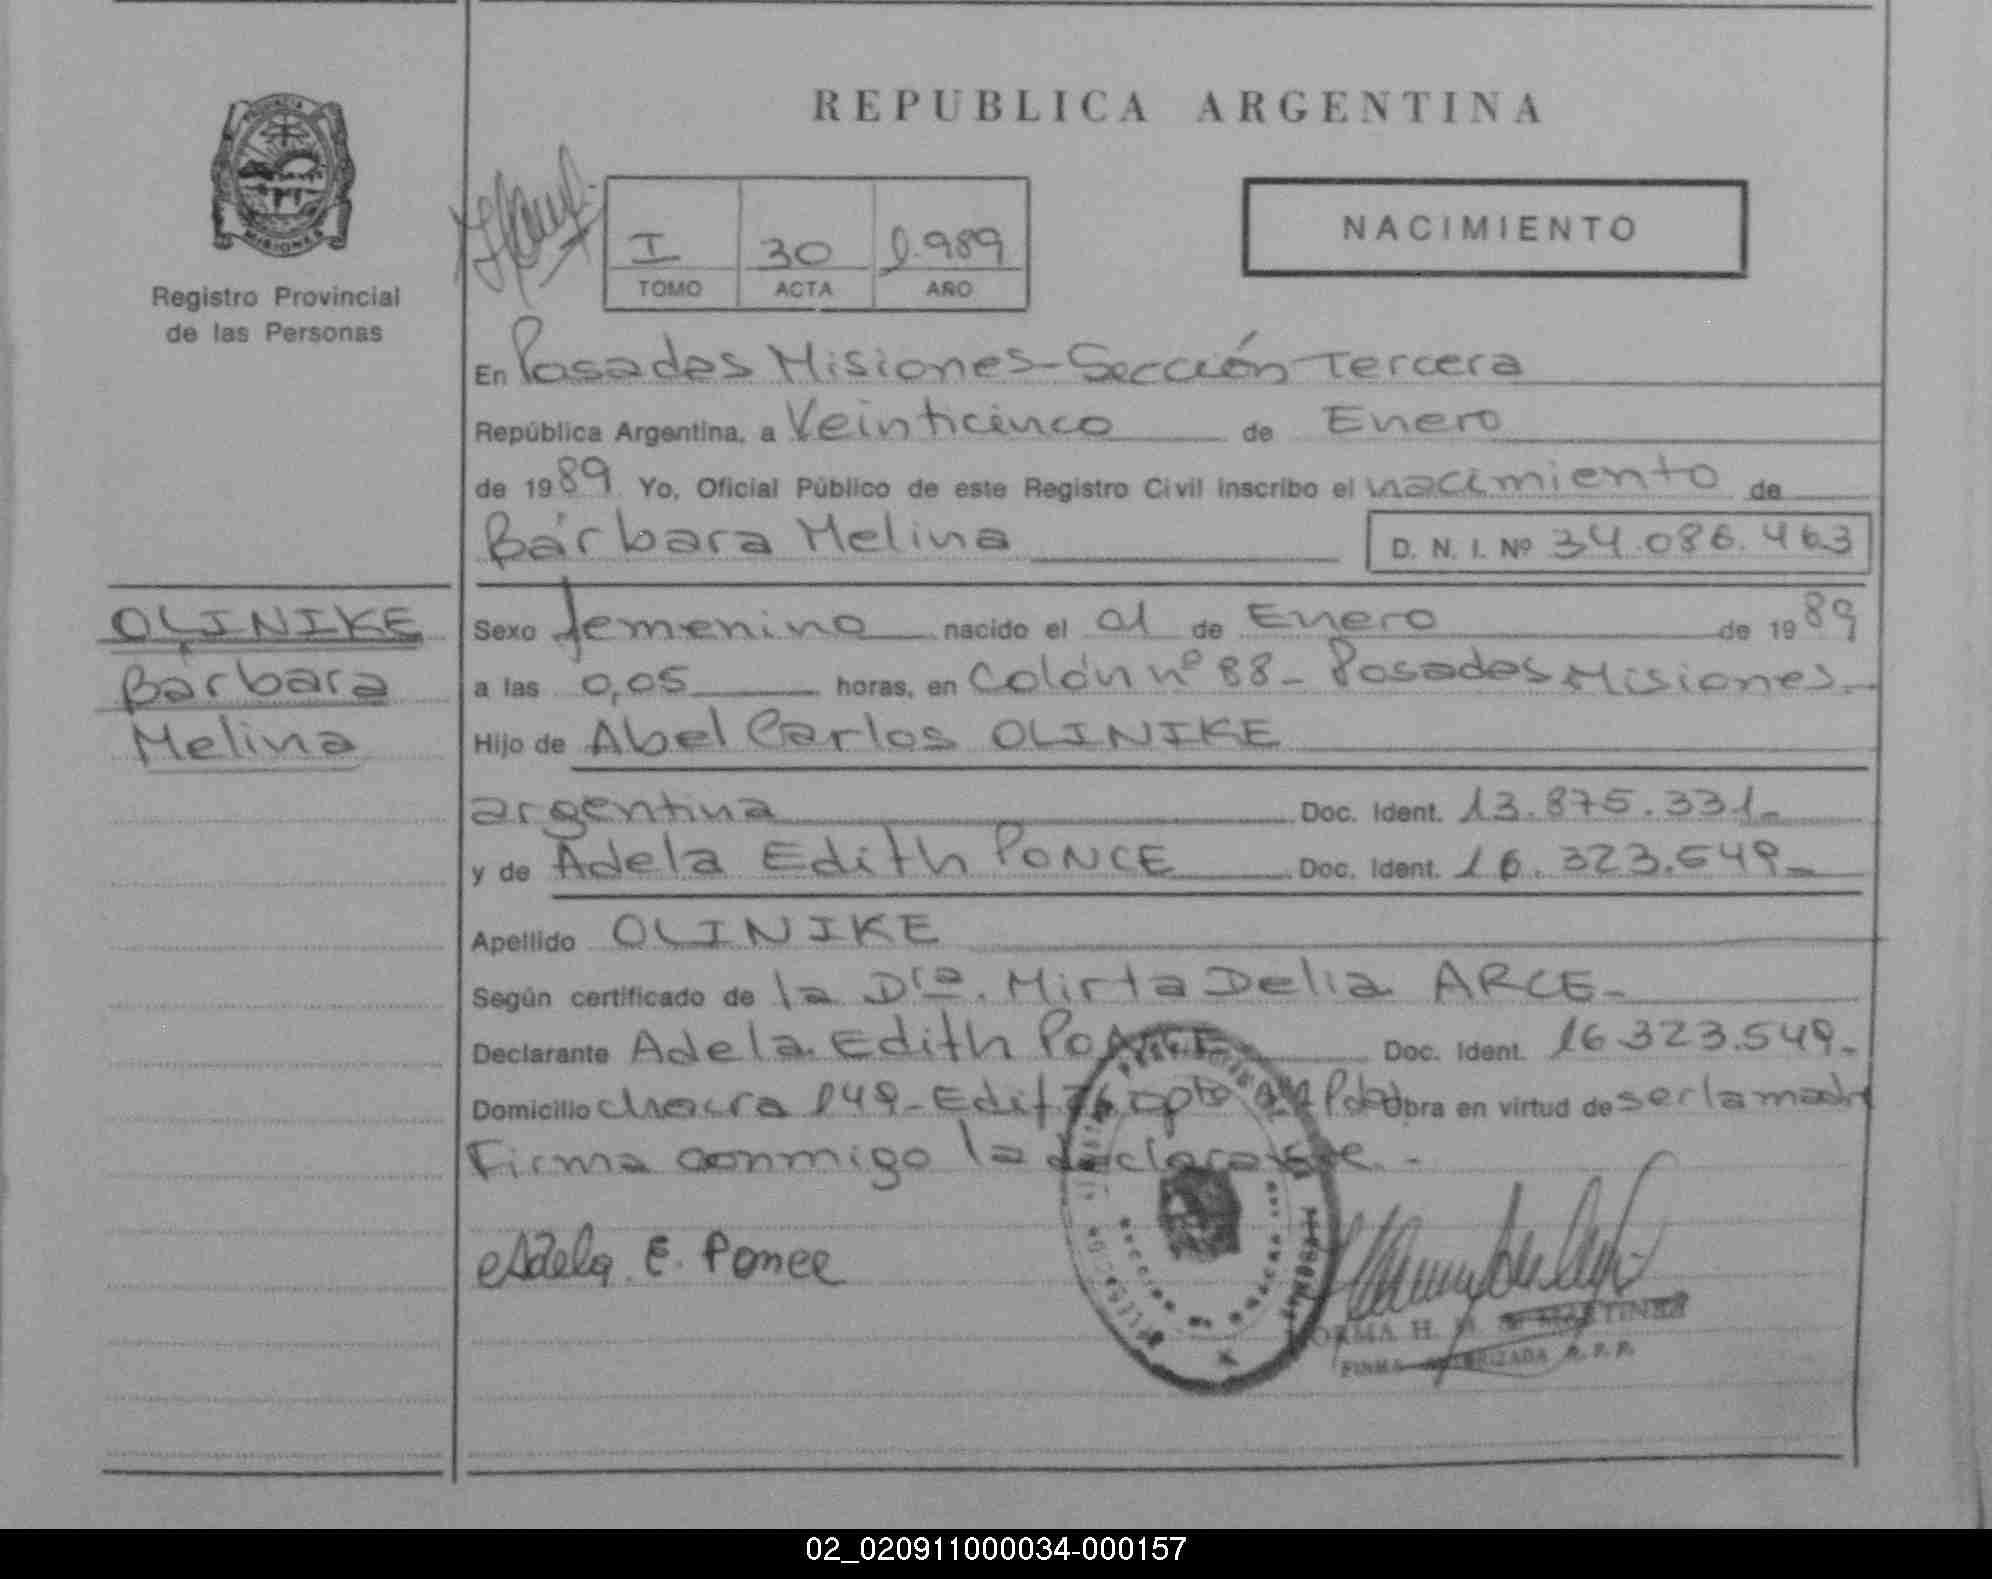 REPUBLICA ARGENTINA
PROVINCIA
MISIONES
Registro Provincial
de las Personas
I 30 1.989
TOMO ACTA AÑO
NACIMIENTO
En Posadas Misiones-Sección Tercera
República Argentina, a Veinticinco de Enero
de 1989 Yo, Oficial Público de este Registro Civil inscribo el nacimiento de
Bárbara Melina D. N. I. Nº 34.086.463
OLINIKE
Bárbara
Melina
Sexo femenino nacido el 01 de Enero de 1989
a las 0,05 horas, en Colón nº 88- Posadas Misiones-
Hijo de Abel Carlos OLINIKE
argentina Doc. Ident. 13.875.331-
y de Adela Edith PONCE Doc. Ident. 16.323.549-
Apellido OLINIKE
Según certificado de la Dra. Mirta Delia ARCE-
Declarante Adela Edith PONCE Doc. Ident. 16.323.549-
Domicilio chacra 149- Edif dpto Obra en virtud de ser la madre
Firma conmigo la declarante.-
Adela E. Ponce
NORMA H. MARTINEZ
FIRMA AUTORIZADA R. P. P.
02_020911000034-000157